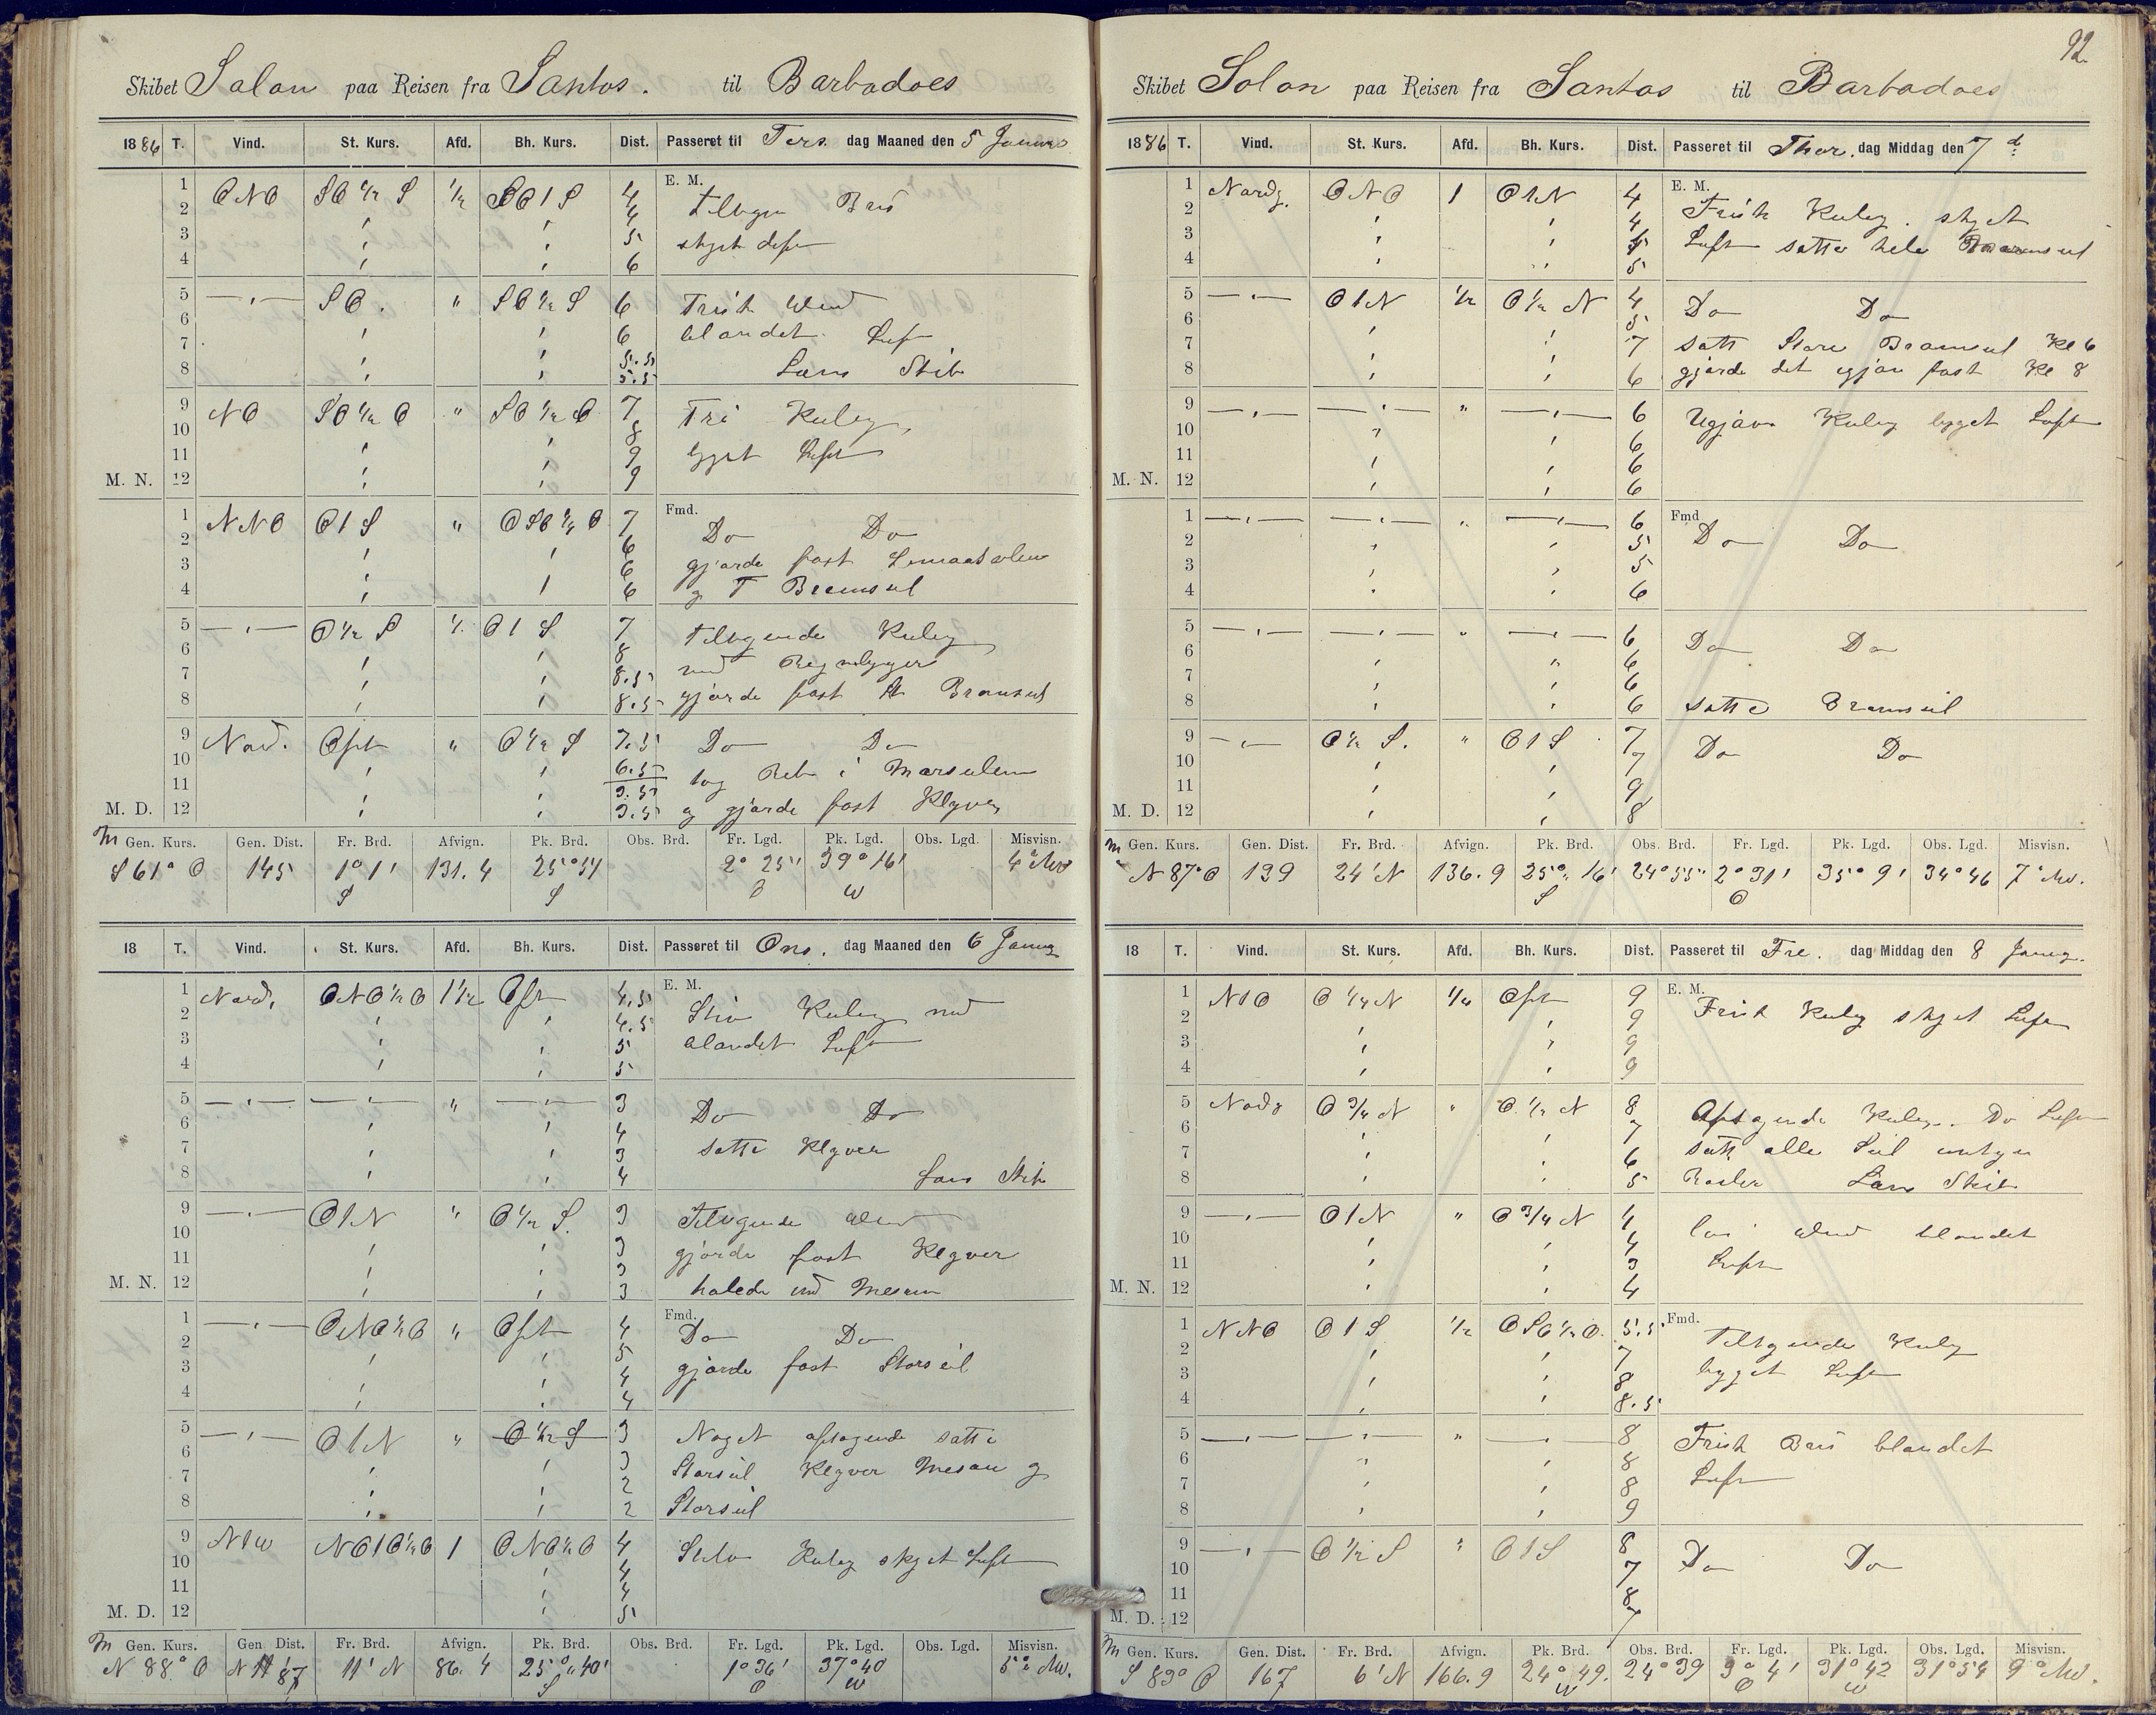 92.
Skibet Solon paa Reisen fra Santos. til Barbadoes
1886 T. Vind. St. Kurs. Afd. Bh. Kurs. Dist. Passeret til Tirs. dag Maaned den 5 Januar
E. M.
1 ONO SO ½ S ½ SO 1 S 4 Bris
2 4
3 5
4 6
5 SO. " SO ½ S 6 Frisk Vind
6 6 blandet Luft
7 5.5
8 5.5 Lens Skib
9 NO SO ½ O " SO ½ O 7 Kuling
10 8
11 9 Luft
M. N. 12 9
Fmd.
1 NNO O 1 S " OSO ¼ O 7 Do Do
2 6
3 6 gjorde fast
4 6 Bramseil
5 O ½ S O 1 S 7 Tiltagende Kuling
6 8 med Regnbyger
7 8.5
8 8.5 gjorde fast St Bramseil
9 Nord. Ost " O ½ S 7.5 Do Do
10 6.5
11 3.5 tog Reb i Mersseilene
M. D. 12 3.5 og gjorde fast Klyver
M Gen. Kurs. Gen. Dist. Fr. Brd. Afvign. Pk. Brd. Obs. Brd. Fr. Lgd. Pk. Lgd. Obs. Lgd. Misvisn.
S 61° O 145 1° 1' 131.4 25° 51 2° 25' 39° 16' 4° NW
S S O W
18 T. Vind. St. Kurs. Afd. Bh. Kurs. Dist. Passeret til Ons. dag Maaned den 6 Januar
E. M.
1 Nord. ONO ½ O 1½ Ost 4.5
2 4.5 Stiv Kuling med
3 5 blandet Luft
4 5
5 " 3 Do Do
6 4
7 3 satte Klyver
8 4 Lens Skib
9 O 1 N " O ½ S. 3 Tiltagende Vind
10 3 gjorde fast Klyver
11 3
M. N. 12 3 halede ind Mesan
Fmd.
1 ONO ½ O " Ost 4 Do Do
2 5
3 4 gjorde fast Storseil
4 4
5 O 1 N " O ½ S 3 Noget aftagende satte
6 3
7 2 Storseil Klyver Mesan og
8 2 Storseil
9 N 1 W NO 1 O ½ O 1 ONO ½ O 4 Stiv Kuling skyet Luft
10 4
11 4
M. D. 12 5
M Gen. Kurs. Gen. Dist. Fr. Brd. Afvign. Pk. Brd. Obs. Brd. Fr. Lgd. Pk. Lgd. Obs. Lgd. Misvisn.
N 88° O 87 11' N 86.4 25° 40' 1° 36' 37° 40 5° NW.
S O W
Skibet Solon paa Reisen fra Santos til Barbadoes
1886 T. Vind. St. Kurs. Afd. Bh. Kurs. Dist. Passeret til Thor. dag Middag den 7 d:
E. M.
1 Nordg. ONO 1 O 1 N 4
2 4 Frisk Kuling. skyet
3 5 Luft satte hele
4 5
5 O 1 N ½ O ½ N 4 Do Do
6 5
7 7 satte Store Bramseil Kl 6
8 6 gjorde det igjen fast Kl 8
9 " 6 Ugjævn Kuling bygget Luft
10 6
11 6
M. N. 12 6
Fmd.
1 " 6
2 5 Do Do
3 5
4 6
5 " 6 Do Do
6 6
7 6
8 6 satte Bramseil
9 O ½ S. " O 1 S 7 Do Do
10 7
11 9
M. D. 12 8
M Gen. Kurs. Gen. Dist. Fr. Brd. Afvign. Pk. Brd. Obs. Brd. Fr. Lgd. Pk. Lgd. Obs. Lgd. Misvisn.
N 87° O 139 24' N 136.9 25° 16' 24° 55 2° 31' 35° 9' 34° 46 7° NW.
S O
18 T. Vind. St. Kurs. Afd. Bh. Kurs. Dist. Passeret til Fre. dag Middag den 8 Januar.
E. M.
1 N 1 O O ¼ N ¼ Ost 9 Frisk Kuling skyet Luft
2 9
3 9
4 9
5 O ¾ N " O ½ N 8 Aftagende Kuling. Do Luft
6 7
7 6 satte alle Seil
8 5 Lens Skib
9 O 1 N " O ¾ N 4
10 4 Vind blandet
11 3 Luft
M. N. 12 4
Fmd.
1 NNO O 1 S ½ OSO ½ O. 5.5
2 7 Tiltagende Kuling
3 8 bygget Luft
4 8.5
5 " 8 Frisk Bris blandet
6 8
7 8 Luft
8 9
9 O ½ S " O 1 S 8 Do Do
10 7
11 8
M. D. 12 7
M Gen. Kurs. Gen. Dist. Fr. Brd. Afvign. Pk. Brd. Obs. Brd. Fr. Lgd. Pk. Lgd. Obs. Lgd. Misvisn.
S 89° O 167 6' N 166.9 24° 49. 24° 39 3° 4' 31° 42 31° 54 9° NW.
W O W